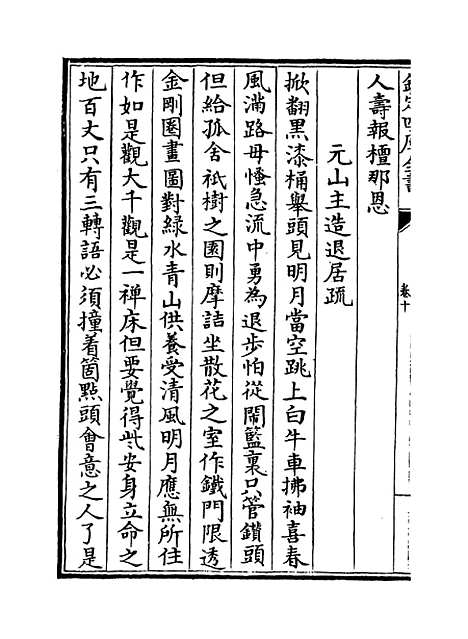 欽定四庫全書
卷十
人壽報檀那恩
元山主造退居疏
掀翻黑漆桶舉頭見明月當空跳上白牛車拂袖喜春
風滿路毋慅急流中勇為退步怕從鬧籃裏只管鑽頭
但給孤舍祇樹之園則摩詰坐散花之室作鐵門限透
金剛圏畫圖對綠水青山供養受清風明月應無所住
作如是觀大千觀是一禅床但要覺得此安身立命之
地百丈只有三轉語必須撞着箇點頭會意之人了是